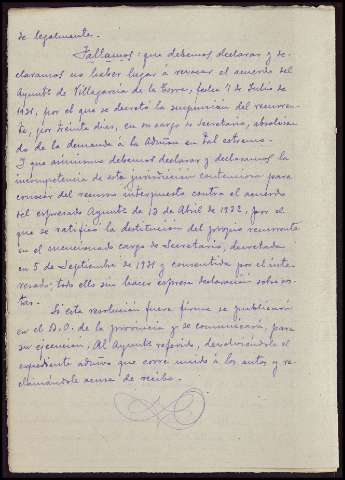 de legalmente.
Fallamos: que debemos declarar y de-
claramos no haber lugar á revocar el acuerdo del
Ayuntº de Villagarcía de la Torre, fecha 7 de Julio de
1931, por el que se decretó la suspensión del recurren-
te, por treinta días, en su cargo de Secretario, absolvien-
do de la demanda á la Admon en tal extremo.
Y que asimismo debemos declarar y declaramos la
incompetencia de esta jurisdicción contenciosa para
conocer del recurso interpuesto contra el acuerdo
del expresado Ayuntº de 13 de Abril de 1932, por el
que se ratificó la destitución del propio recurrente
en el mencionado cargo de Secretario, decretada
en 5 de Septiembre de 1931 y consentida por el inte-
resado; todo ello sin hacer expresa declaración sobre cos-
tas.
Si esta resolución fuere firme se publicará
en el B.O. de la provincia y se comunicará, para
su ejecución, al Ayuntº referido, devolviéndole el
expediente admvo que corre unido á los autos y re-
clamándole acuse de recibo.